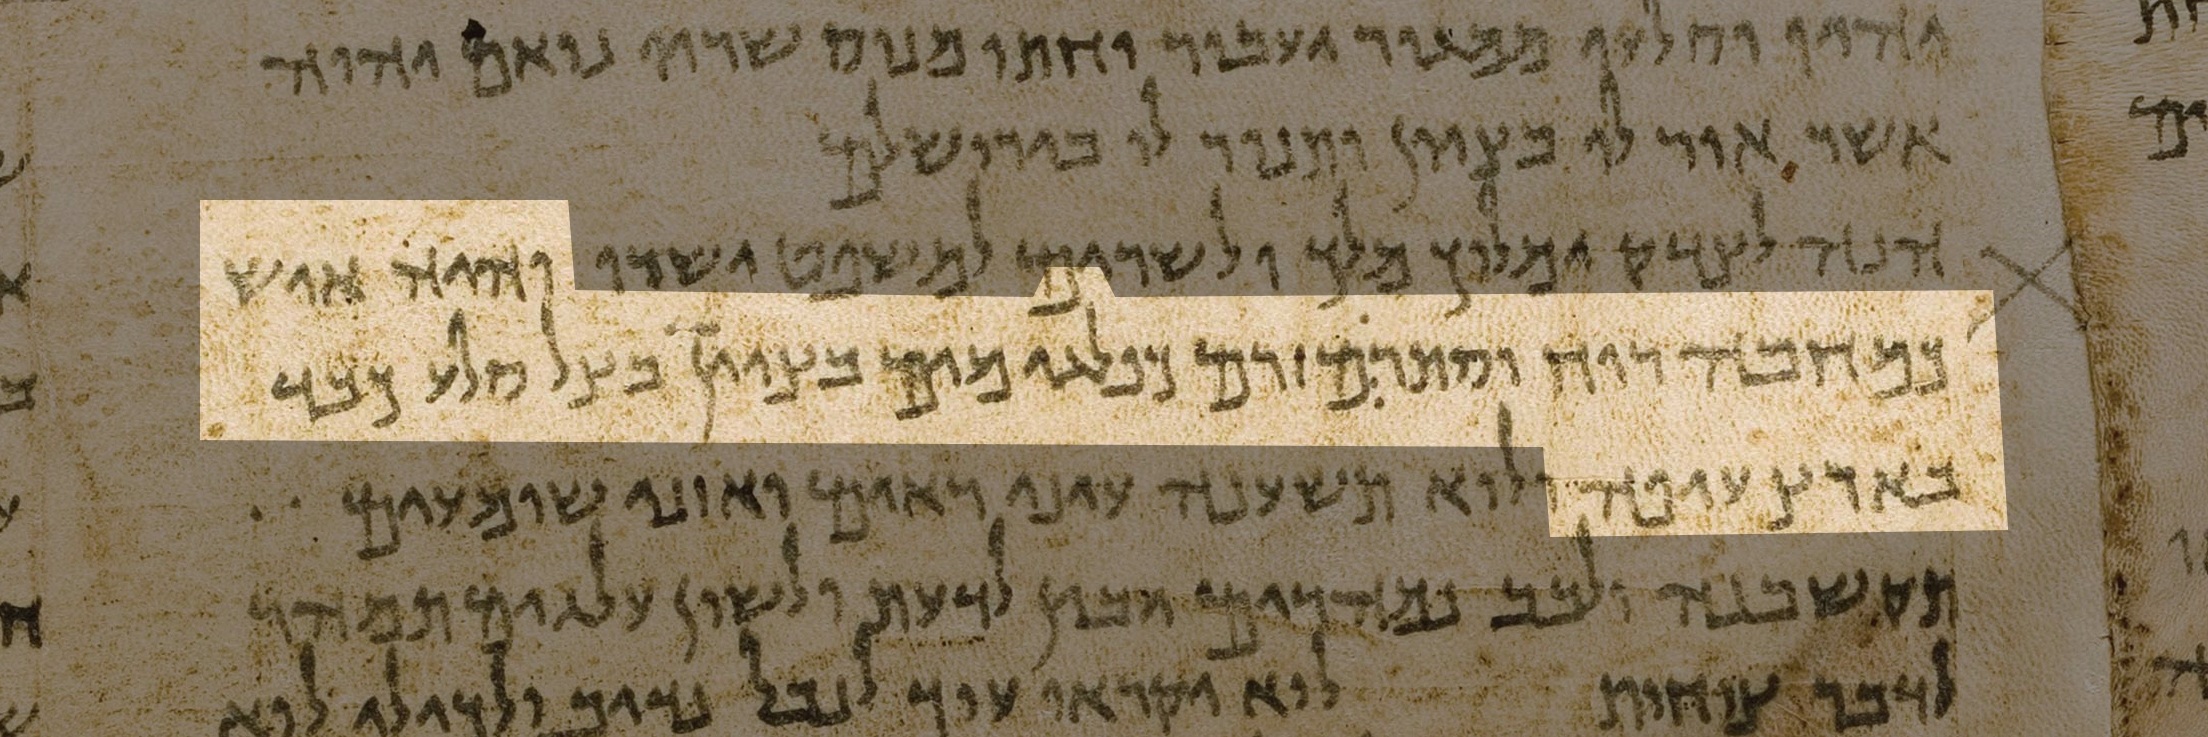 יהיו וסלעו ממגור יעבור וחתו מנוס שריו נואם יהוה
אשר אור לו בציון ותנור לו בירושלם
הנה לצדק ימלוך מלך ולשרים למשפט ישרו והיה איש
כמחבה רוח וסתרם זרם כפלגי מים בציון בצל סלע כבד
בארץ עיפה ולוא תשענה עיני ראים ואזני שומעים
תקשבנה ולבב נמהרים יבין לדעת ולשון עלגים תמהר
לדבר צחות לוא יקראו עוד לנבל נדיב ולכילי לוא